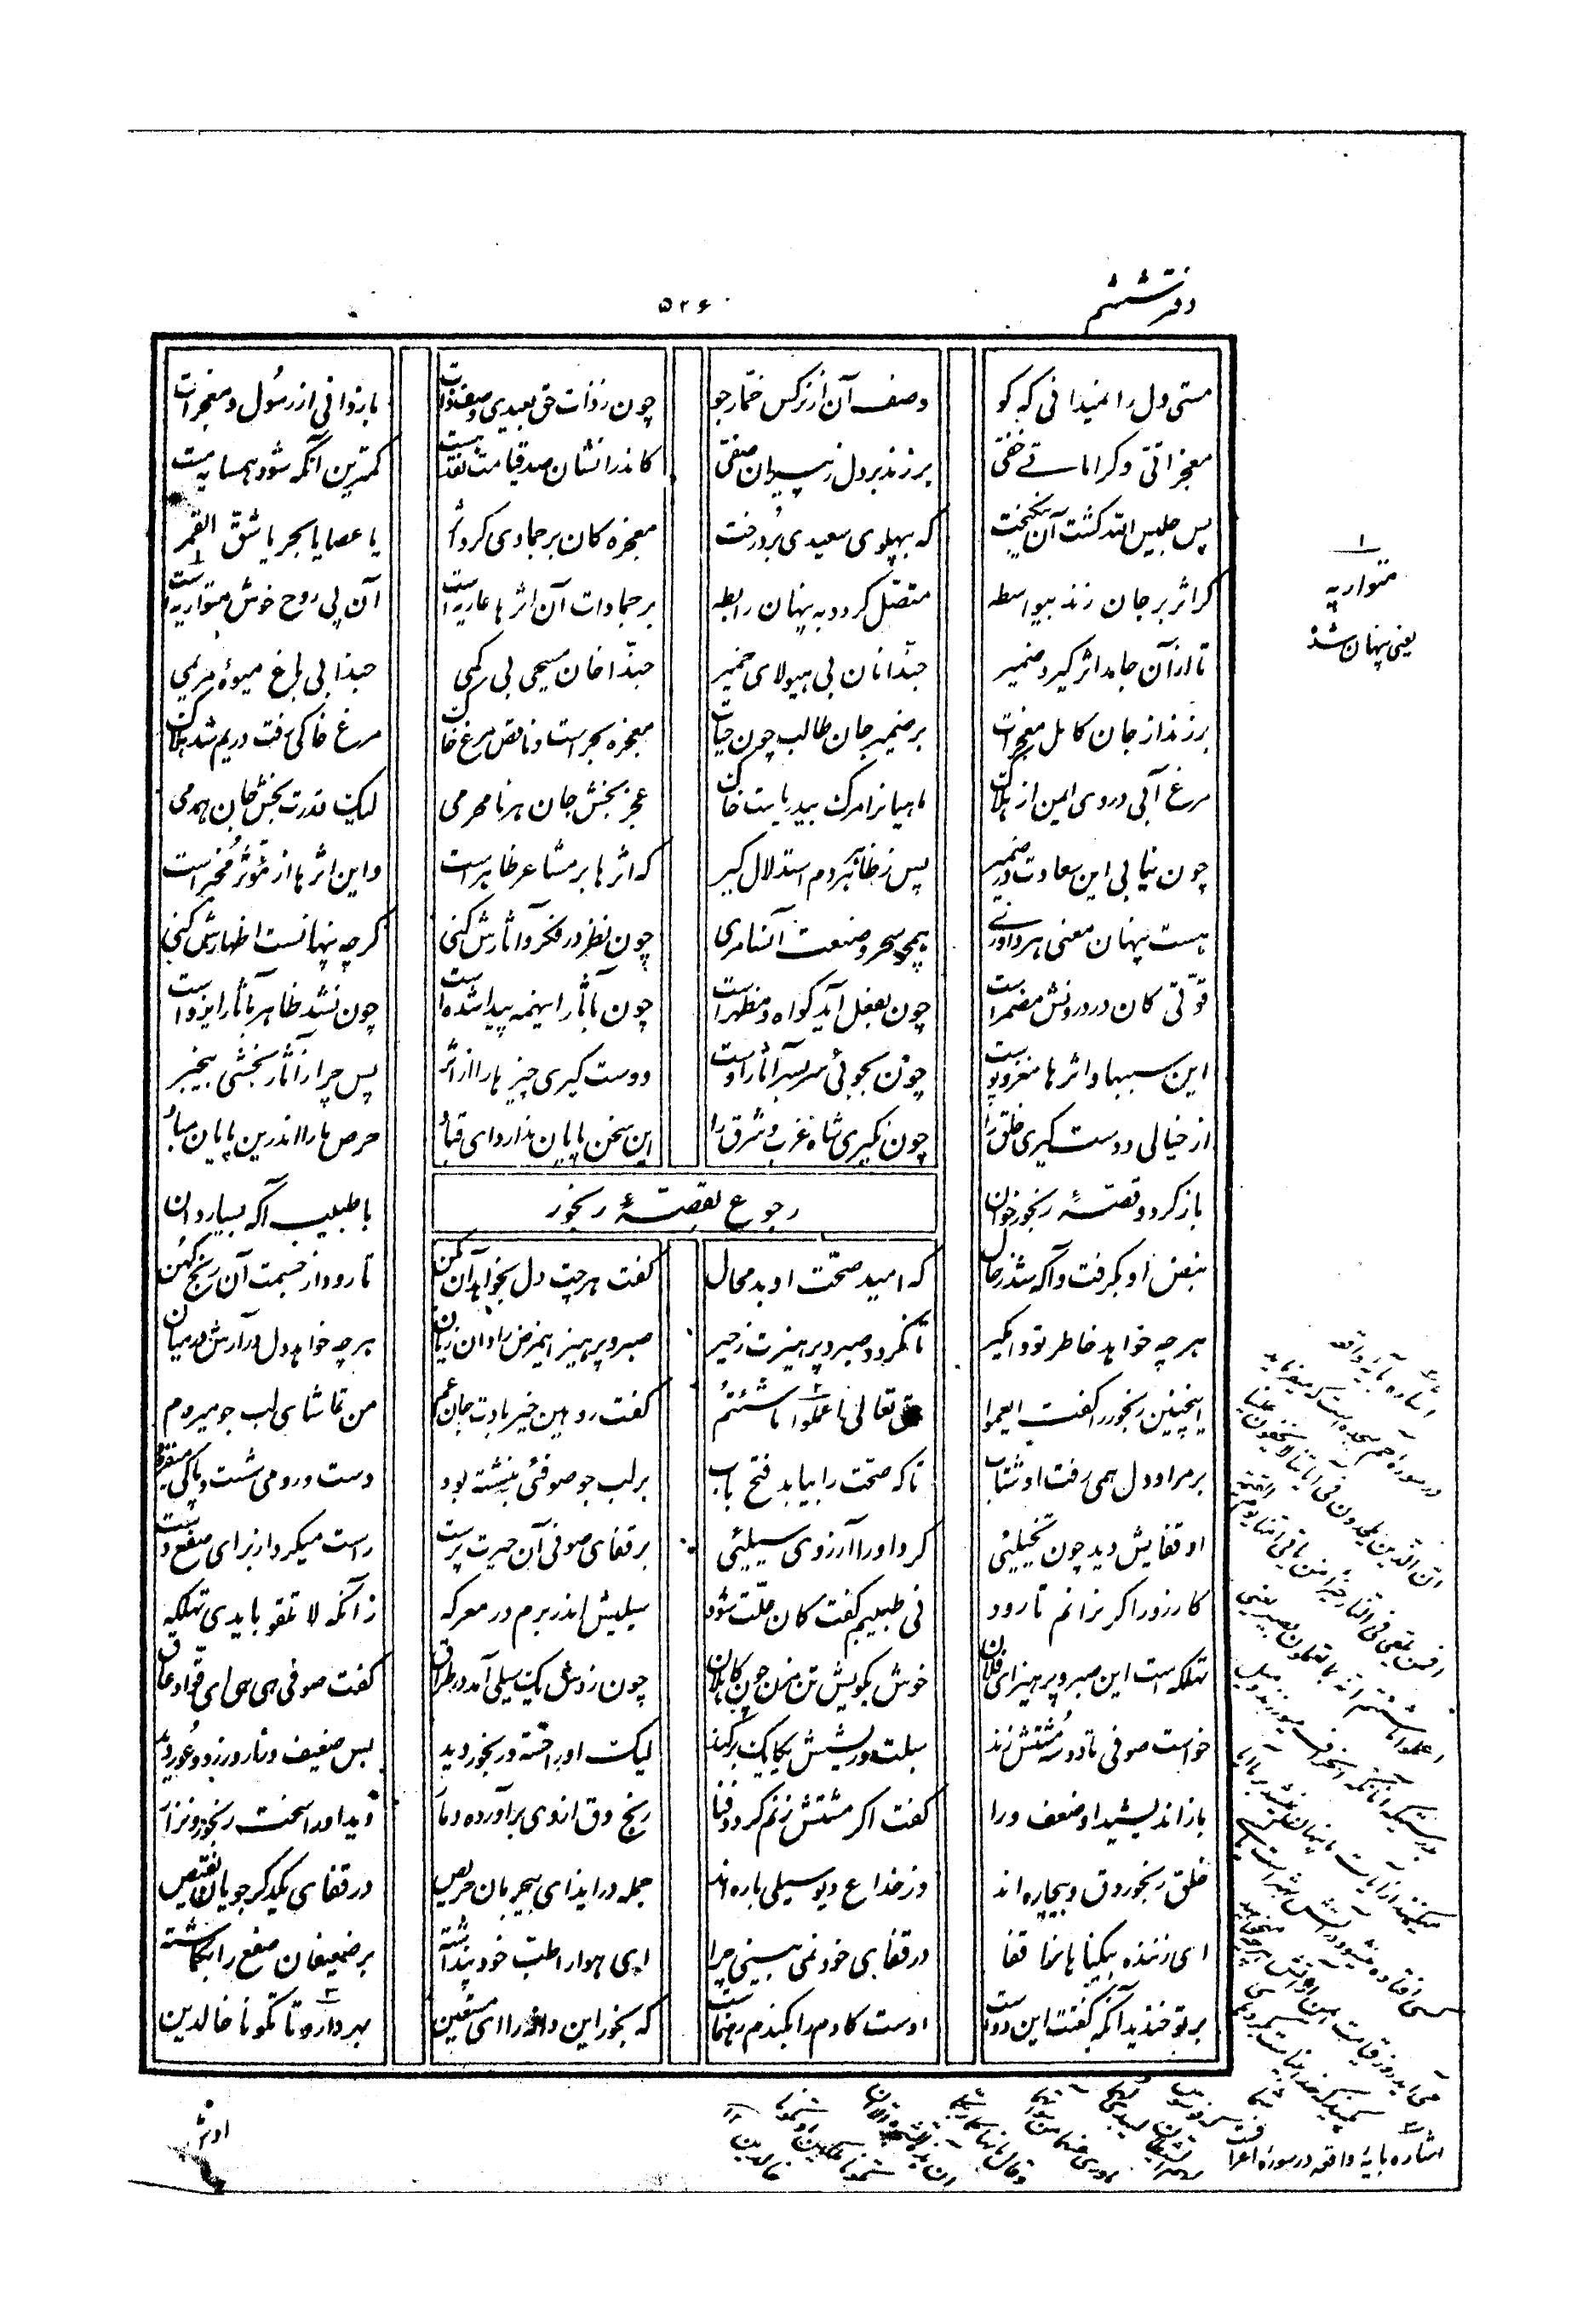 دفتر ششم
۵۲۶
مستی دل را نمیدانی که کو
وصف آن از نرکس خمّار جو
چون ز ذات حق بعیدی وصف ذات
بازدانی از رسُول و معجزات
معجزاتی و کراماتے خفی
بر زند بر دل ز پیران صفی
کاندرانشان صد قیامت نقد هست
کمترین آنکه شود همسایه مست
پس جلیس الله کشت آن نیکبخت
که بپهلوی سعیدی بُرد رخت
معجزه کان بر جمادی کرد اثر
یا عصا یا بحر یا شقّ القمر
کر اثر بر جان زند بیواسطه
متصّل کردد به پنهان رابطه
بر جمادات آن اثرها عاریه است
آن پی روح خوش متواریه است
تا از آن جامد اثر کیرد ضمیر
حبّذا نان بی هیولای خمیر
حبّذا خان مسیحی بی کمی
حبذا بی باغ میوهٔ مریمی
برزند از جان کامل معجزات
بر ضمیر جان طالب چون حیات
معجزه بحر است و ناقص مرغ خاک
مرغ خاکی رفت در یم شد هلاک
مرغ آبی در وی ایمن از هلاک
ماهیانرا مرک بیدریاست خاک
عجز بخش جان هر نامحرمی
لیک قدرت بخش جان همدمی
چون نیابی این سعادت در ضمیر
پس ز ظاهر هر دم استدلال کیر
که اثرها بر مشاعر ظاهر است
واین اثرها از مؤثر مُخبر است
هست پنهان معنی هر داوری
همچو سحر و صنعت آنسامری
چون نظر در فکر و آثارش کنی
کرچه پنهانست اظهارش کنی
قوّتی کان در درونش مضمر است
چون بفعل آید کواه و مظهر است
چون بآثار اینهمه پیدا شده است
چون نشد ظاهر بآثار ایزد است
این سببها و اثرها مغز و پوست
چون بجوئی سربسر آثار اوست
دوست کیری چیزها را از اثر
پس چرا ز آثاربخشی بیخبر
از خیالی دوست کیری خلق را
چون نکیری شاه غرب و شرق را
این سخن پایان ندارد ای قباد
حرص ما را اندرین پایان مباد
رجوع بقصّهٔ رنجور
باز کرد و قصّهٔ رنجور خوان
با طبیب آکه بسیاردان
نبض او بکرفت و آکه شد ز حال
که امید صحّت او بد محال
کفت هرچت دل بخواهد آن بکن
تا رود از جسمت آن رنج کهُن
هر چه خواهد خاطر تو وامکیر
تا نکردد صبر و پرهیزت زحیر
صبر و پرهیز اینمرض را دان زیان
هر چه خواهد دل درآرش در میان
اینچنین رنجور را کفت ایعمو
حق تعالی اعملوا ما شئتمُ
کفت رو هین خیر بادت جان عم
من تماشای لب جو میروم
بر مراد دل همی رفت او شتاب
تا که صحّت را بیابد فتح باب
بر لب جو صوفئی بنشسته بود
دست و رو می شست و پاکی میفزود
او قفایش دید چون تخییلئی
کرد او را آرزوی سیلیئی
بر قفای صوفی آن حیرت پرست
راست میکرد از برای صفع دست
کارزو را کر نرانم تا رود
نی طبیبم کفت کان علّت شود
سیلیش اندر برم در معرکه
زانکه لا تلقو بایدی تهلکه
تهلکه است این صبر و پرهیز ای فلان
خوش بکوبش تن مزن چون کاهلان
چون زدش یک سیلی آمد در طراق
کفت صوفی هی هی ای قوّاد عاق
خواست صوفی تا دو سه مُشتش زند
سبلت و ریشش یکایک برکند
لیک او را خسته و رنجور دید
بس ضعیف و زار و زرد و عور دید
باز اندیشید او ضعف ورا
کفت اکر مشتش زنم کردد فنا
رنج دق از وی برآورده دمار
دید او را سخت رنجور و نزار
خلق رنجور دق و بیچاره اند
وز خداع دیو سیلی باره اند
جمله در ایذای بیجرمان حریص
در قفای یکدکر جویان نقیص
ای زننده بیکناهان را قفا
در قفای خود نمی بینی چرا
ای هوا را طب خود پنداشته
بر ضعیفان صفع را بکماشته
بر تو خندید آنکه کفتت این دواست
اوست کادم را بکندم رهنماست
که بخور این دانه را ای مستعین
بهر دارو تا تکونا خالدین
۱
متواریه
یعنی پنهان شده
۲
اشاره بآیهٔ واقعه
در سورهٔ حم سجده است که میفرماید
ان الّذین یلحدون فی آیاتنا لا یخفون علینا
افمن یلقی فی النار خیر امن یاتی آمنا یوم القیمة
اعملوا ما شئتم انه بما تعملون بصیر یعنی
۳
اشاره بآیهٔ واقعه در سورهٔ اعراف